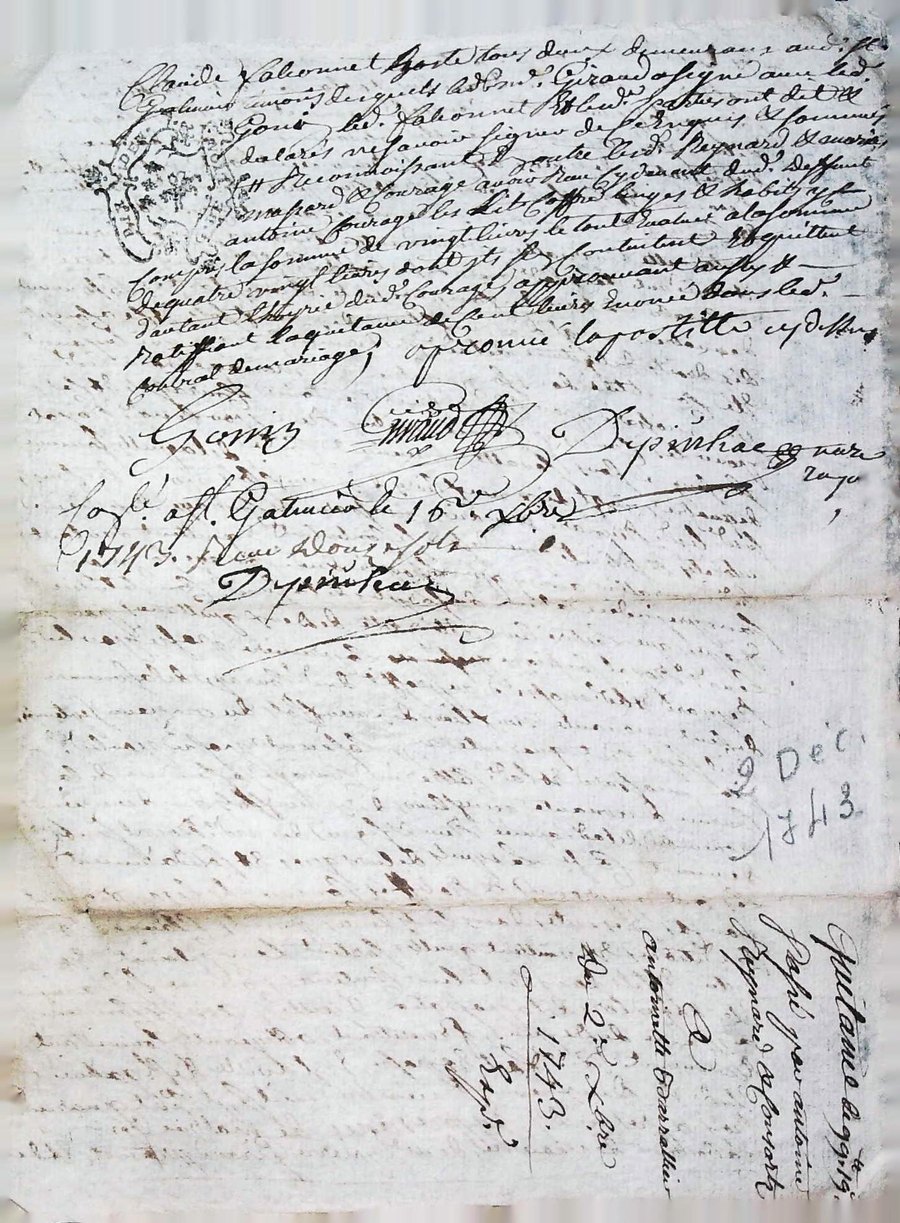 Claude Vahonnet hoste tous deux demeurans aud. St
Galmier témoins lesquels led. Sr. Giraud a signé avec led.
Gonin led. Vahonnet & lesd. parties ont dit &
déclarés ne savoir signer de ce requis & sommés
Et Reconnoissant outre lesd. Reynard &
& Courage avoir Reçu cy devant dud. deffunt
antoine Courage les Lit Coffre linges & habits y
Compris la somme de vingt livres le tout Evalué a la somme
de quatre vingt livres dont ils se Contentent Enquittent
dautant lhoyrie dud. Courage, approuvant aussy &
Ratiffiant la quitance de Cent livres Enoncé dans led.
Contrat de mariage, approuvé lapostille cy dessus
Gonin Giraud Depinhac
Conlé. a St. Galmier le 16e Xbre
1743. Reçu Douze sols
Depinhac
Dec.
1743
Quitance de 99lt 19s
passé par antoine
Reynard & Consorts
A
antoinette
Du 2e Xbre
1743.
Expé.